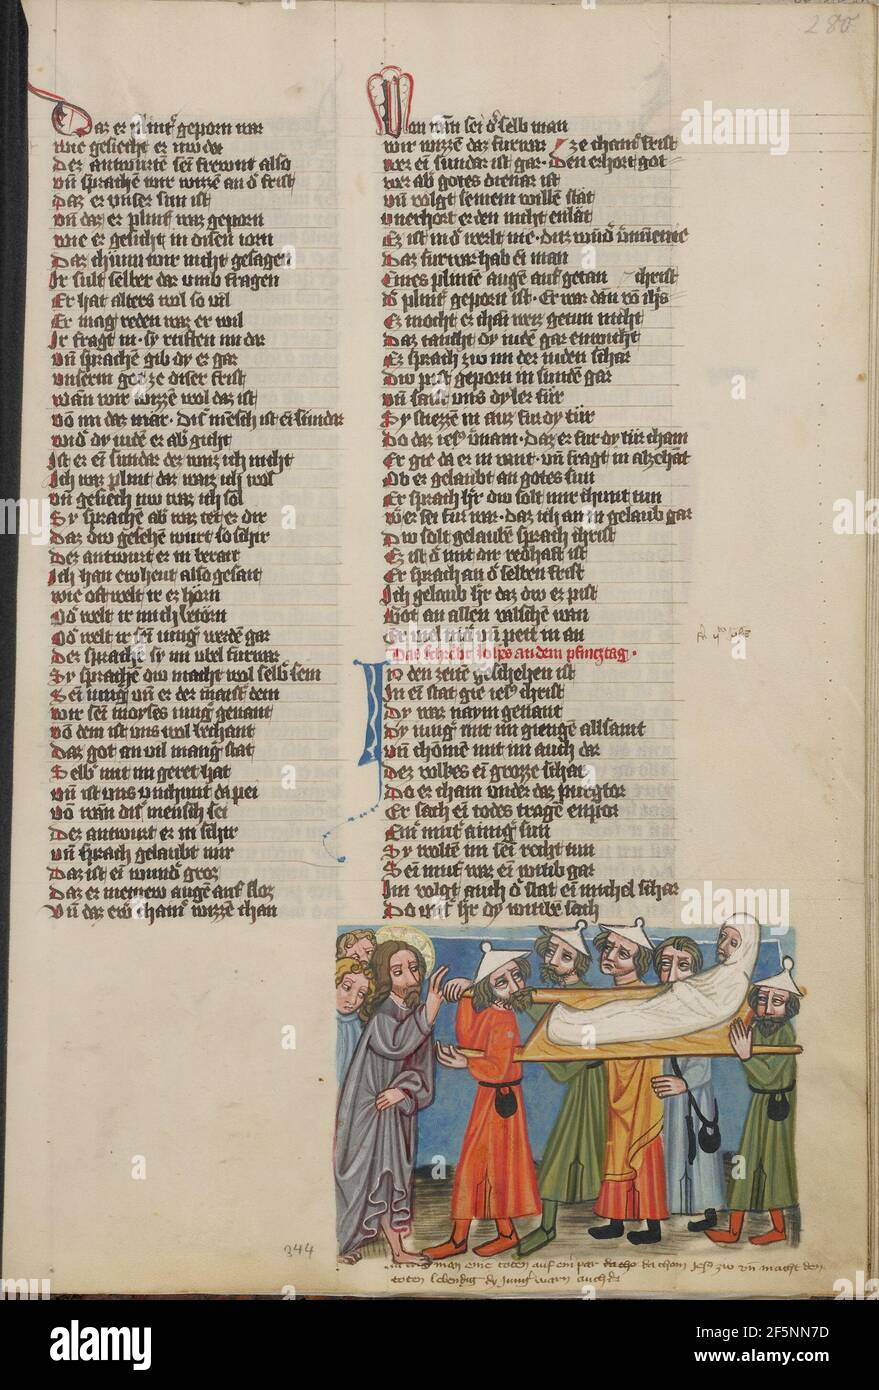 280
Daz er plint geporn war
wie gesiecht er nw dar
Der antwurtē sei frewnt also
vn̄ sprachē wir wizzē an d' frist
Daz er vnser sun ist
vn̄ daz er plint waz geporn
wie er gesicht in disen iorn
Daz chunn wir nicht gesagen
Ir sult selber dar umb fragen
Er hat alters wol so vil
Er mag reden waz er wil
Ir fragt in · sy rufften im dar
vn̄ sprachē gib dy er gar
unserm got ze diser frist
wann wir wizzē wol daz ist
vō im daz mar · Dis' mēsch ist ei sundar
Ist er ei sundar dez waiz ich nicht
Ich waz plint daz waiz ich wol
vn̄ gesiech nw waz ich sol
Sy sprachē ab' waz tet er dir
Daz dw gesehē wurt so schir
Der antwurt er in berait
Ich han ew hewt also gesait
wie oft welt ir er hörn
Od' welt ir mich betörn
Od' welt ir sei iung' werdē gar
Der sprachē sy im vbel furwar
Sy sprachē dw macht wol selb' sein
Sei iung' vn̄ er der maist' dein
wir sei moyses iung' genant
vō dem ist uns wol bechant
Daz got an vil mang' stat
Selb' mit im geret hat
vn̄ ist uns vnchunt da pei
vō wan dis' mensch sei
Der antwurt er in schir
vn̄ sprach gelaubt mir
Daz ist ei wund' groz
Daz er meinew augē auf sloz
Vn̄ daz ew cham' wizzē chan
Von wān sei d' selb man
wir wizzē daz furwar ze cham' frist
wer ei sundar ist gar · Den erhort got
wer ab' gotes dienar ist
vn̄ volgt seinem willē stat
vnerhort er den nicht enlat
Ez ist in d' werlt nie · ditz wūd' v'nūme
Daz furwar hab ei man
Eines plintē augē auf getan christ
D' plint' geporn ist · Er war dān vō ih's
Ez mocht er chai weiz getun nicht
Daz taucht dy iudē gar enwicht
Ez sprach zw im der iuden schar
Dw pist geporn in sundē gar
vn̄ larst uns dy ler für
Sy stiezzē in auz fur dy tür
Do daz ies' v'nam · Daz er fur dy tür cham
Er gie da er in vant · vn̄ fragt in alzehāt
Ob er gelaubt an gotes sun
Er sprach h'r dw solt mir chunt tun
wer sei fur war · daz ich an in gelaub gar
Dw solt gelaubē sprach christ
Ez ist d' mit dir redhaft ist
Er sprach an d' selben frist
Ich gelaub h'r daz dw er pist
Got an allen valschē wan
Er viel nid' vn̄ pett in an
Daz schreibt Joh's an dem phincztag ·
In den zeitē geschehen ist
In ei stat gie ies' christ
Dy waz naym genant
Dy iung' mit im giengē allsamt
vn̄ chōmē mit im auch dar
Dez volkes ei grozze schar
Do er cham under daz purgtor
Er sach ei todes tragē enpor
Ein' mut' ainig' sun
Sy woltē im sei recht tun
Sei mut' waz ei witib gar
Im volgt auch d' stat ei michel schar
Do uns' h'r dy witibe sach
344
man eine toten auf ein par da cho da chom Jesus zw vn̄ macht den
toten lebendig dy iung' warn auch da
alamy
Image ID: 2F5NN7D
www.alamy.com